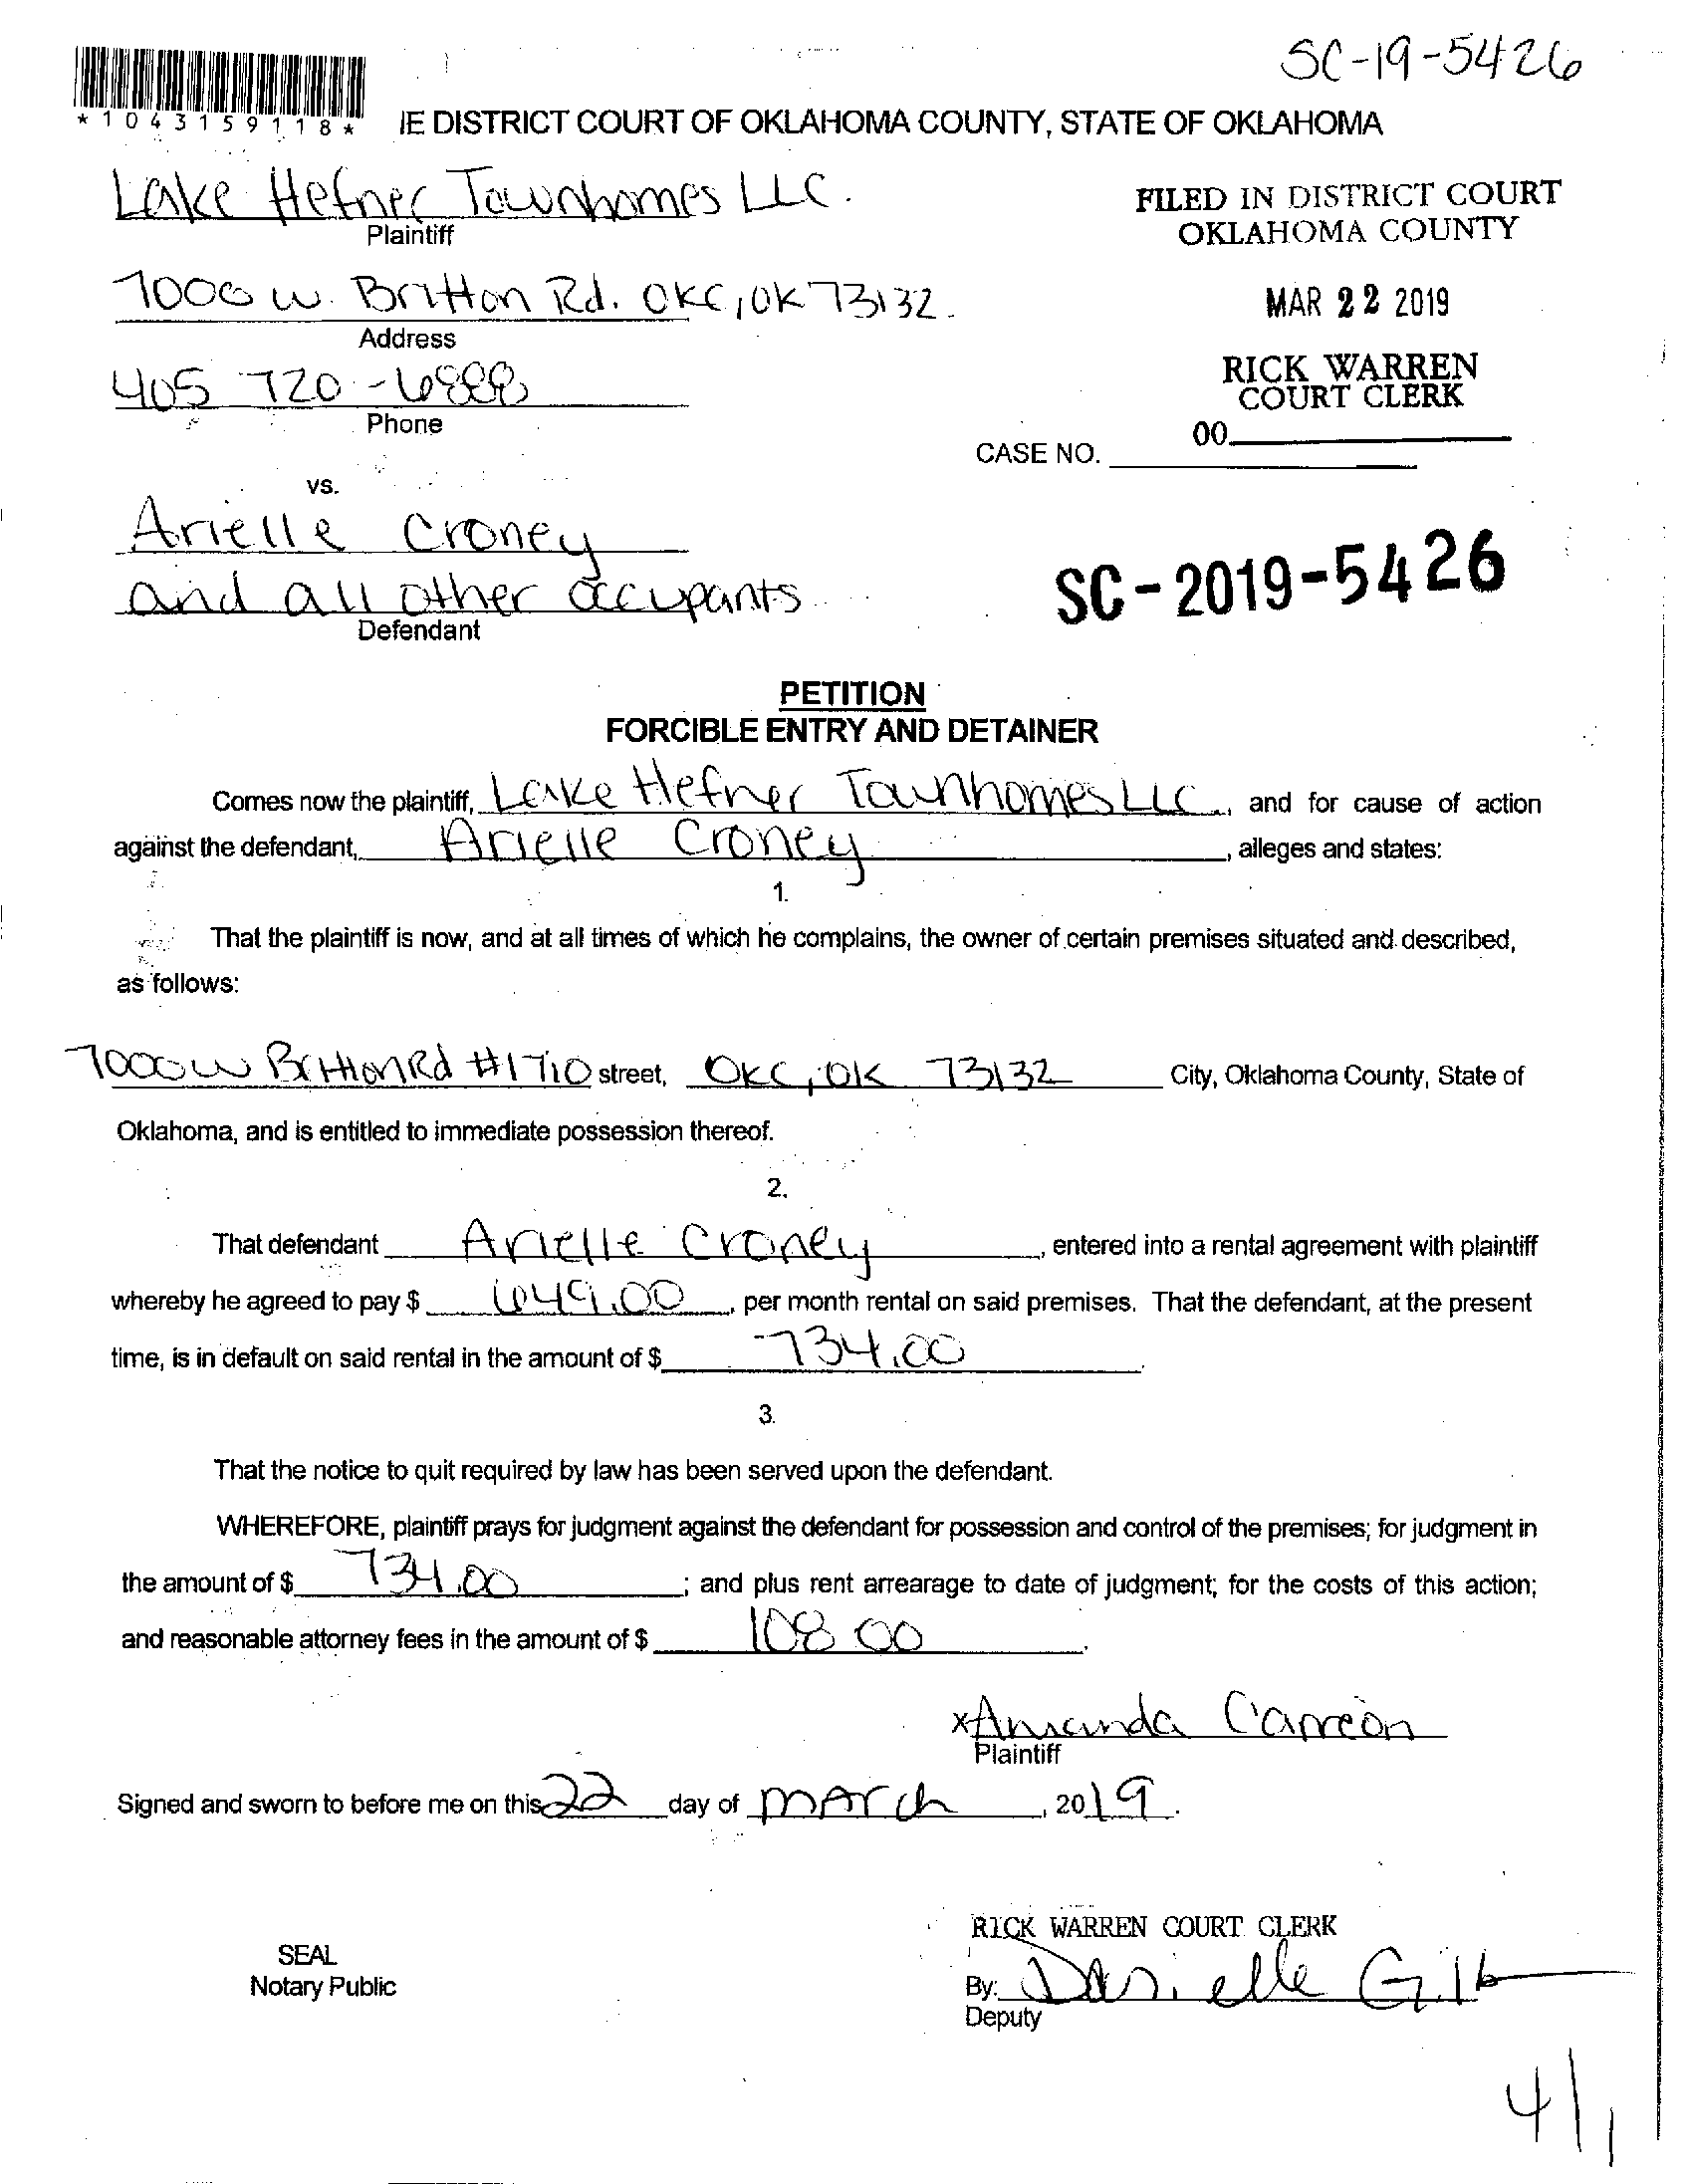 SC-19-5426
*1043159118*
IE DISTRICT COURT OF OKLAHOMA COUNTY, STATE OF OKLAHOMA
Lake Hefner Townhomes LLC.
Plaintiff
FILED IN DISTRICT COURT
OKLAHOMA COUNTY
7000 W. Britton Rd. OKC, OK 73132
Address
MAR 22 2019
405 720-6888
Phone
RICK WARREN
COURT CLERK
00
CASE NO.
vs.
Arielle Croney
and all other occupants
Defendant
SC-2019-5426
PETITION
FORCIBLE ENTRY AND DETAINER
Comes now the plaintiff, Lake Hefner Townhomes LLC, and for cause of action
against the defendant, Arielle Croney, alleges and states:
1.
That the plaintiff is now, and at all times of which he complains, the owner of certain premises situated and described,
as follows:
7000 W Britton Rd #1710 street, OKC, OK 73132 City, Oklahoma County, State of
Oklahoma, and is entitled to immediate possession thereof.
2.
That defendant Arielle Croney, entered into a rental agreement with plaintiff
whereby he agreed to pay $ 649.00, per month rental on said premises. That the defendant, at the present
time, is in default on said rental in the amount of $ 734.00.
3.
That the notice to quit required by law has been served upon the defendant.
WHEREFORE, plaintiff prays for judgment against the defendant for possession and control of the premises; for judgment in
the amount of $ 734.00; and plus rent arrearage to date of judgment; for the costs of this action;
and reasonable attorney fees in the amount of $ 108 00.
x Amanda Carreon
Plaintiff
Signed and sworn to before me on this 22 day of March, 2019.
RICK WARREN COURT CLERK
SEAL
Notary Public
By: Danielle
Deputy